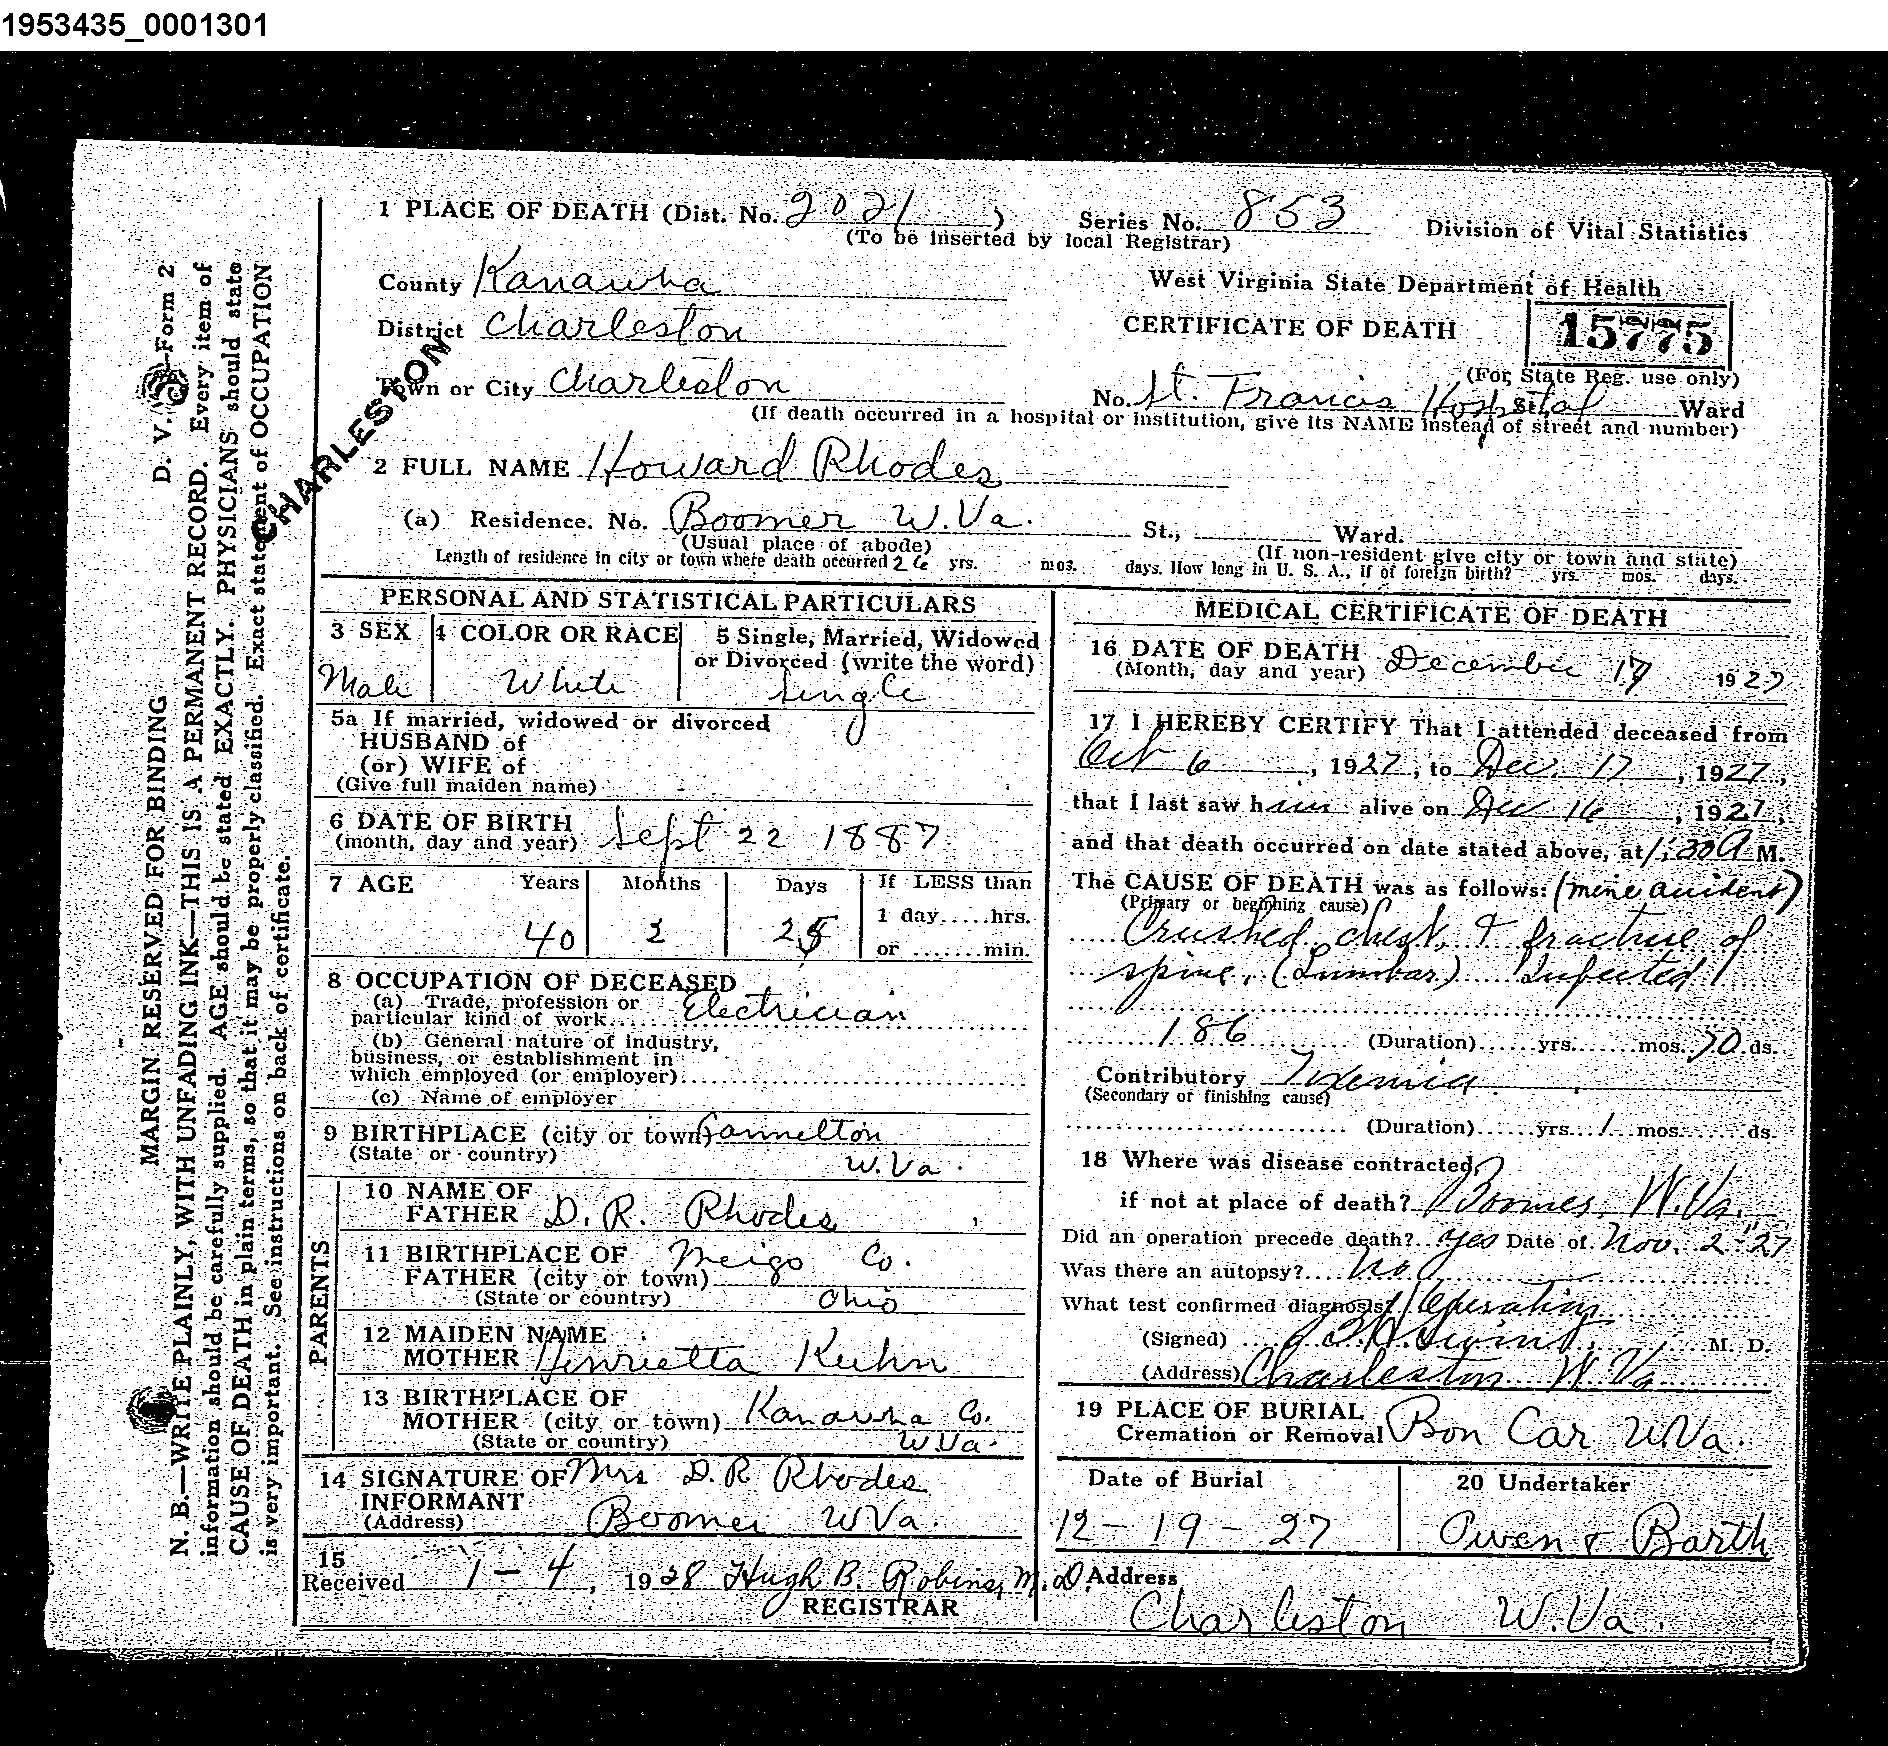 1953435_0001301
1 PLACE OF DEATH (Dist. No. 2021 ) Series No. 853 Division of Vital Statistics
(To be inserted by local Registrar)
County Kanawha West Virginia State Department of Health
District Charleston CERTIFICATE OF DEATH 15775
CHARLESTON
(For State Reg. use only)
Town or City Charleston No. St. Francis Hospital St. Ward
(If death occurred in a hospital or institution, give its NAME instead of street and number)
2 FULL NAME Howard Rhodes
(a) Residence. No. Boomer W. Va. St., Ward.
(Usual place of abode) (If non-resident give city or town and state)
Length of residence in city or town where death occurred 26 yrs. mos. days. How long in U. S. A., if of foreign birth? yrs. mos. days.
PERSONAL AND STATISTICAL PARTICULARS
3 SEX 4 COLOR OR RACE 5 Single, Married, Widowed
or Divorced (write the word)
Male White Single
5a If married, widowed or divorced
HUSBAND of
(or) WIFE of
(Give full maiden name)
6 DATE OF BIRTH
(month, day and year) Sept 22 1887
7 AGE Years Months Days If LESS than
1 day.....hrs.
40 2 25
or .......min.
8 OCCUPATION OF DECEASED
(a) Trade, profession or
particular kind of work... Electrician
(b) General nature of industry,
business, or establishment in
which employed (or employer)
(c) Name of employer
9 BIRTHPLACE (city or town) Cannelton
(State or country) W. Va.
PARENTS
10 NAME OF
FATHER D. R. Rhodes
11 BIRTHPLACE OF Meigs Co.
FATHER (city or town)
(State or country) Ohio
12 MAIDEN NAME
MOTHER Henrietta Kuhn
13 BIRTHPLACE OF
MOTHER (city or town) Kanawha Co.
(State or country) W. Va.
14 SIGNATURE OF Mrs D. R Rhodes
INFORMANT
(Address) Boomer W Va.
15
Received 1 - 4, 1928 Hugh B. Robins, M. D.
REGISTRAR
MEDICAL CERTIFICATE OF DEATH
16 DATE OF DEATH
(Month, day and year) December 17 1927
17 I HEREBY CERTIFY That I attended deceased from
Oct 6, 1927, to Dec. 17, 1927,
that I last saw him alive on Dec 16, 1927,
and that death occurred on date stated above, at 1:30 A M.
The CAUSE OF DEATH was as follows: (mine accident)
(Primary or beginning cause)
Crushed chest, & fracture of
spine. (Lumbar) Infected
186 (Duration) yrs. mos. 70 ds.
Contributory Toxemia
(Secondary or finishing cause)
(Duration) yrs. 1 mos. ds.
18 Where was disease contracted,
if not at place of death? Boomer, W. Va.
Did an operation precede death? Yes Date of Nov. 2" 27
Was there an autopsy? No
What test confirmed diagnosis? Operation
(Signed) M. D.
(Address) Charleston W Va
19 PLACE OF BURIAL
Cremation or Removal Bon Car W. Va.
Date of Burial 20 Undertaker
12 - 19 - 27 Owen & Barth
Address
Charleston W. Va.
D. V. S. Form 2
MARGIN RESERVED FOR BINDING
N. B.—WRITE PLAINLY, WITH UNFADING INK—THIS IS A PERMANENT RECORD. Every item of
information should be carefully supplied. AGE should be stated EXACTLY. PHYSICIANS should state
CAUSE OF DEATH in plain terms, so that it may be properly classified. Exact statement of OCCUPATION
is very important. See instructions on back of certificate.